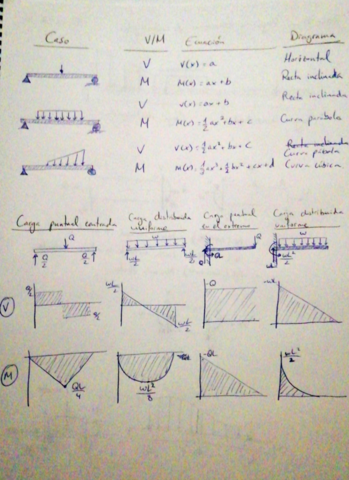 Caso V/M Ecuación Diagrama
V V(x) = a Horizontal
M M(x) = ax + b Recta inclinada
V V(x) = ax + b Recta inclinada
M M(x) = 1/2 ax² + bx + c Curva parábola
V V(x) = 1/2 ax² + bx + c Recta inclinada
Curva
M M(x) = 1/3 ax³ + 1/2 bx² + cx + d Curva cúbica
Carga puntual centrada Carga distribuida uniforme Carga puntual en el extremo Carga distribuida uniforme
Q W Q W
Q/2 Q/2 WL/2 WL/2 QL WL²/2
V Q/2 Q/2 WL/2 WL/2 Q
M QL/4 WL²/8 -QL WL²/2